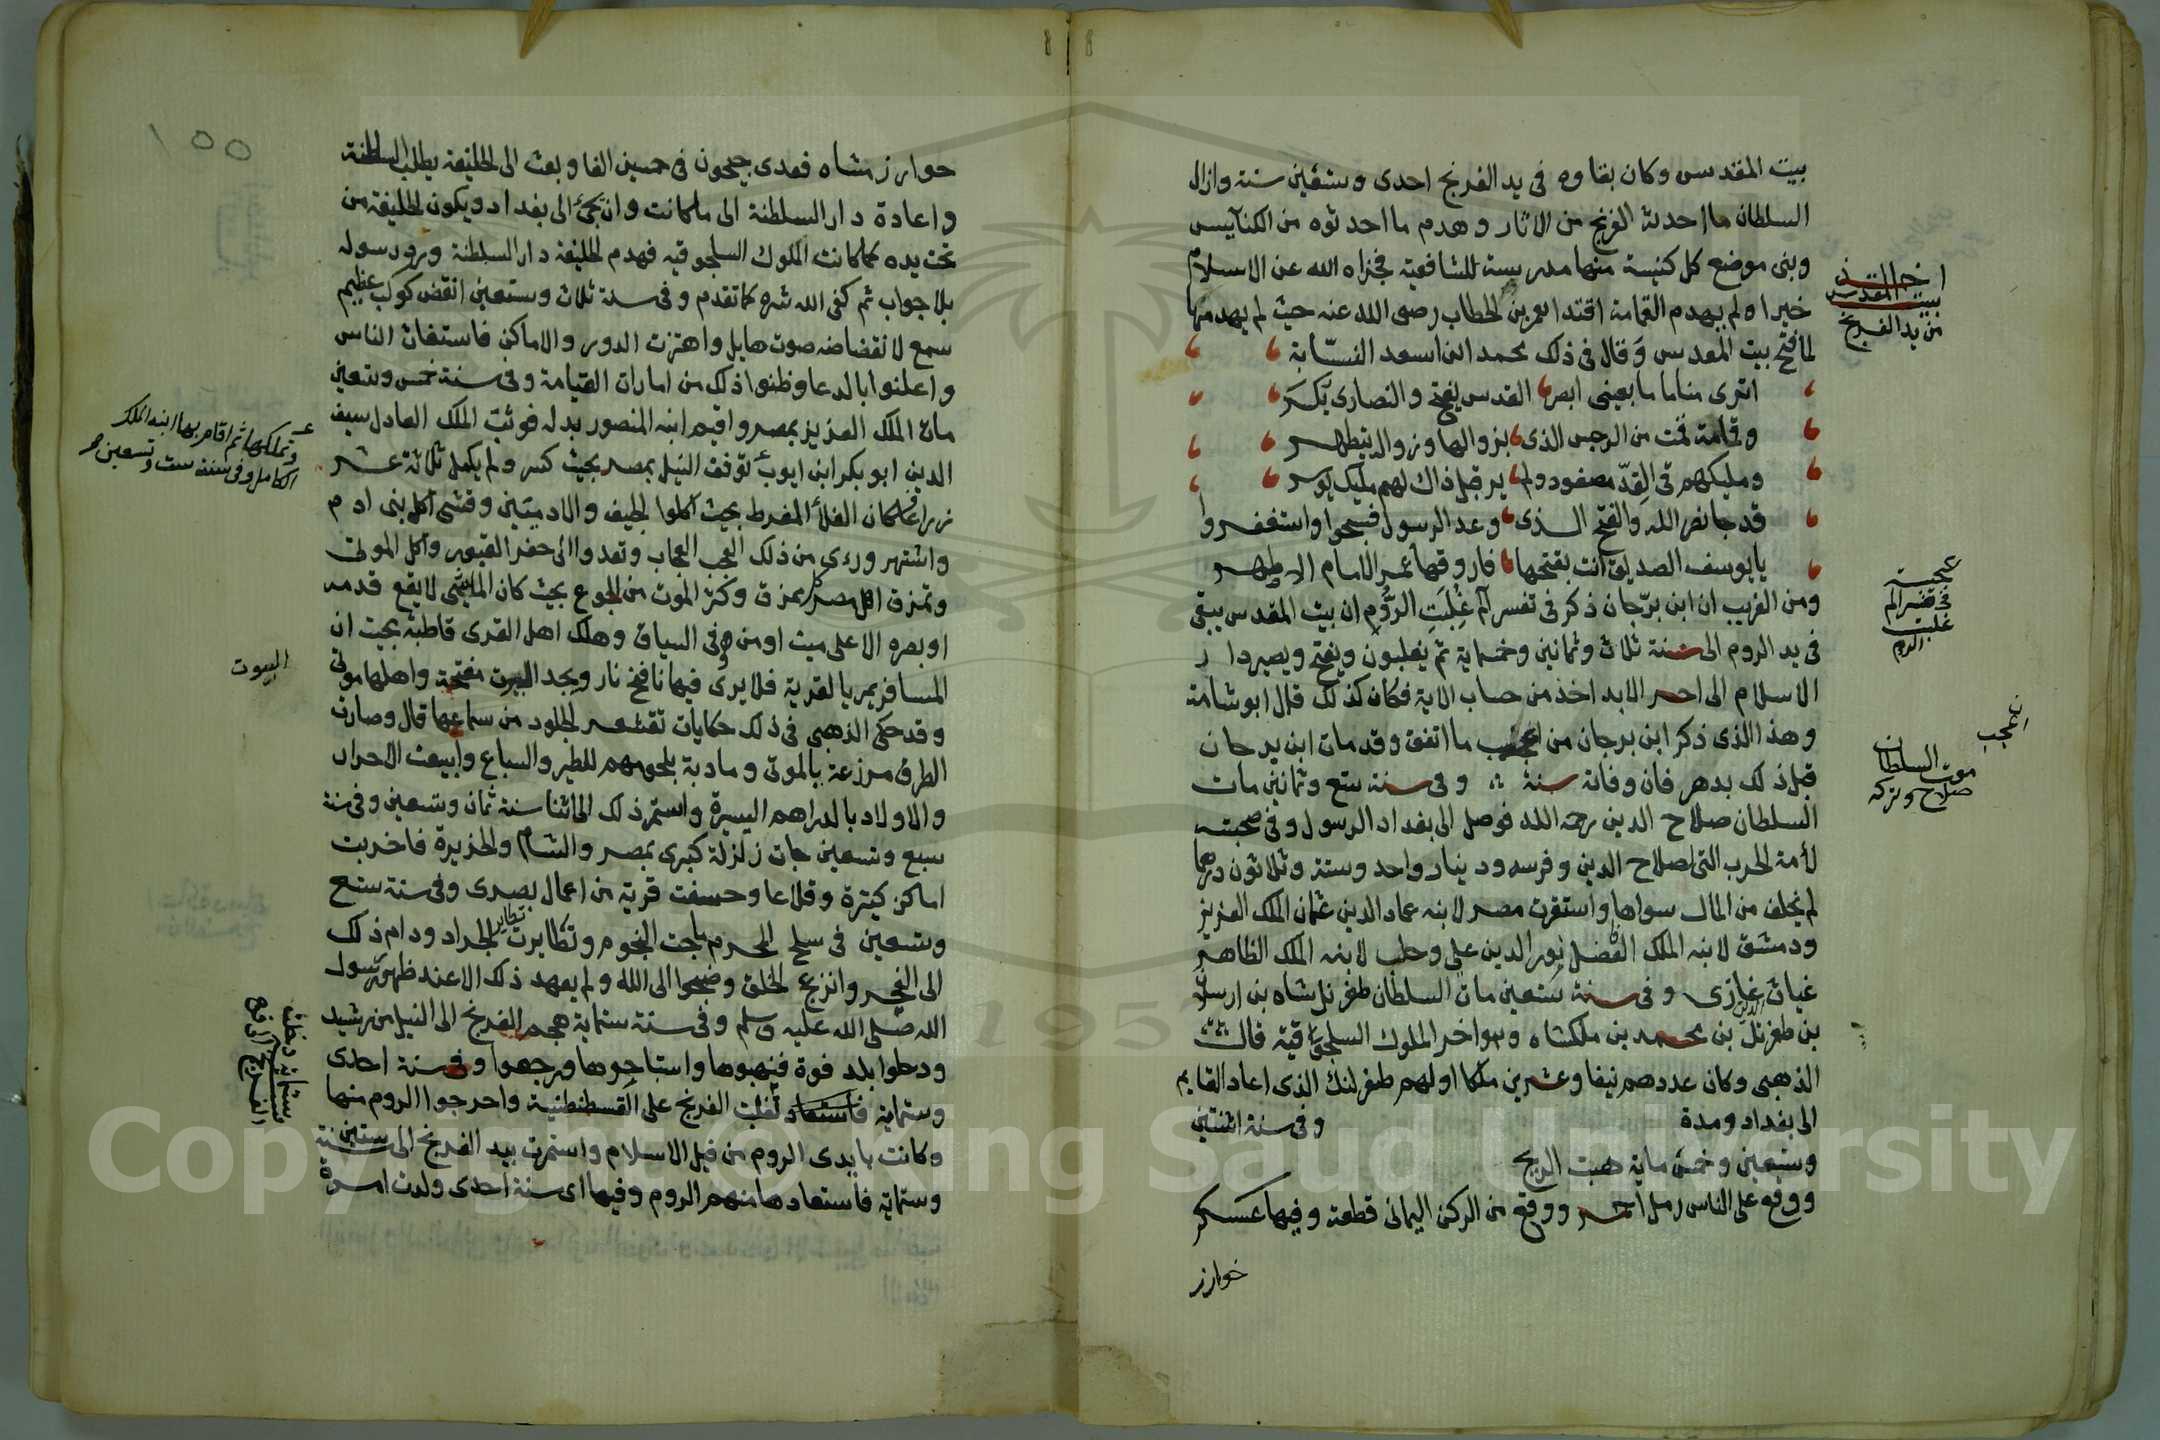 بيت المقدس وكان بقاوه فى يد الفرنج احدى وتسعين سنة وازال
السلطان ما احدث الفرنج من الاثار وهدم ما احدثوه من الكنآيس
وبنى موضع كل كنيسة منها مدرسة للشافعية فجزاه الله عن الاسلام
خيرا ولم يهدم القمامة اقتدا بعمر بن الخطاب رضى الله عنه حيث لم يهدمها
لما فتح بيت المقدس وقال فى ذلك محمد ابن اسعد النسّابة
اترى مناما ما بعينى ابصر القدس يفتح والنصارى تكسر
وقمامة قمت من الرجس الذى بزوالها وزواله يتطهر
ومليكهم فى القدّ مصفود ولم ير قبل ذاك لهم مليك يوسر
قد جا نصر الله والفتح الذى وعد الرسول فسبحوا واستغفروا
يا يوسف الصديق انت بفتحها فاروقها عمر الامام الاطهر
ومن الغريب ان ابن برّجان ذكر فى تفسير الم غلبت الروم ان بيت المقدس يبقى
فى يد الروم الى سنة ثلاث وثمانين وخمماية ثم يغلبون ويفتح ويصير دار
الاسلام الى اخر الابد اخذ من حساب الاية فكان كذلك قال ابو شامة
وهذا الذى ذكر ابن برجان من اعجب ما اتفق وقد مات ابن برجان
قبل ذلك بدهر فان وفاته سنة وفى سنة تسع وثمانين مات
السلطان صلاح الدين رحمه الله فوصل الى بغداد الرسول وفى صحبته
لأمة الحرب التى لصلاح الدين وفرسه ودينار واحد وستة وثلاثون درهما
لم يخلف من المال سواها واستقرت مصر لابنه عماد الدين عثمان الملك العزيز
ودمشق لابنه الملك الافضل نور الدين على وحلب لابنه الملك الظاهر
غياث الدين غازى وفى سنة تسعين مات السلطان طغرلشاه بن ارسلان
بن طغرل بن محمد بن ملكشاه وهو اخر الملوك السلجوقية قال
الذهبى وكان عددهم نيفا وعشرين ملكا اولهم طغرلنك الذى اعاد القايم
الى بغداد ومدة وفى سنة اثنتين
وتسعين وخمس ماية هبت الريح
ووقع على الناس رمل احمر ووقع من الركن اليمانى قطعة وفيها عسكر
خوارز
اخذ القدس
بيت المقدس
من يد الفرنج
عجيبة
فى تفسير الم
غلبت
الروم
العجب
موت السلطان
صلاح وتركه
١٥٥
خوارزمشاه فعدى جيحون فى خمسين الفا وبعث الى الخليفة يطلب السلطنة
واعادة دار السلطنة الى ما كانت وان يجئ الى بغداد ويكون الخليفة من
تحت يده كما كانت الملوك السلجوقيه فهدم الخليفة دار السلطنة ورد رسوله
بلا جواب ثم كفى الله شره كما تقدم وفى سنة ثلاث وتسعين انقض كوكب عظيم
سمع لانقضاضه صوت هايل واهتزت الدور والاماكن فاستغاث الناس
واعلنوا بالدعا وظنوا ذلك من امارات القيامة وفى سنة خمس وتسعين
مات الملك العزيز بمصر واقيم ابنه المنصور بدله فوثب الملك العادل سيف
الدين ابو بكر ابن ايوب توقف النيل بمصر بحيث كسر ولم يكمل ثلاثة عشر
ذراعا فكان الغلأ المفرط بحيث اكلوا الجيف والادميّين وفشى اكل بنى ادم
واشتهر ورءى من ذلك العجب العجاب وتعدوا الى حفر القبور واكل الموتى
وتمزق اهل مصر كل ممزق وكثر الموت من الجوع بحيث كان الماشى لا يقع قدمه
او بصره الا على ميت او من هو فى السياق وهلك اهل القرى قاطبة بحيث ان
المسافر يمر بالقرية فلا يرى فيها نافخ نار ويجد البيوت مفتحة واهلها موتى
وقد حكى الذهبى فى ذلك حكايات تقشعر الجلود من سماعها قال وصارت
الطرق مزرعة بالموتى ومادبة بلحومهم للطير والسباع وابيعت الاحرار
والاولاد بالدراهم اليسيرة واستمر ذلك الى اثنا سنة ثمان وتسعين وفى سنة
سبع وتسعين جات زلزلة كبرى بمصر والشام والجزيرة فاخربت
اماكن كثيرة وقلاعا وخسفت قرية من اعمال بصرى وفى سنة تسع
وتسعين فى سلخ المحرم ماجت النجوم وتطايرت تطاير الجراد ودام ذلك
الى الفجر وانزعج الخلق وضجوا الى الله ولم يعهد ذلك الا عند ظهور رسول
الله صلى الله عليه وسلم وفى سنة ستماية هجم الفرنج الى النيل من رشيد
ودخلوا بلد فوة فنهبوها واستباحوها ورجعوا وفى سنة احدى
وستماية تغلبت الفرنج على القسطنطنية واخرجوا الروم منها
وكانت بايدى الروم من قبل الاسلام واستمرت بيد الفرنج الى سنة ستين
وستماية فاستعادها منهم الروم وفيها اى سنة احدى ولدت امرة
وتملكها ثم اقام بها ابنه الملك
الكامل وفى سنة ست وتسعين
البيوت
Copyright © King Saud University
1957